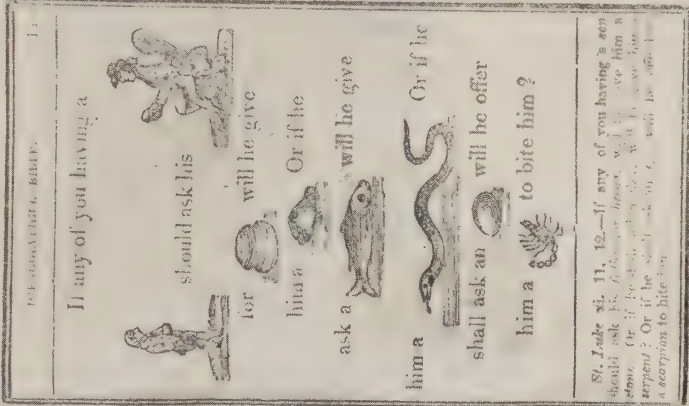 HIEROGLYPHICAL BIBLE.
If any of you having a
should ask his
for will he give
him a Or if he
ask a will he give
him a Or if he
shall ask an will he offer
him a to bite him ?
St. Luke xi. 11, 12.—If any of you having a son
should ask his will he give him a
stone Or if he
serpent ? Or if he will he offer
a scorpion to bite him